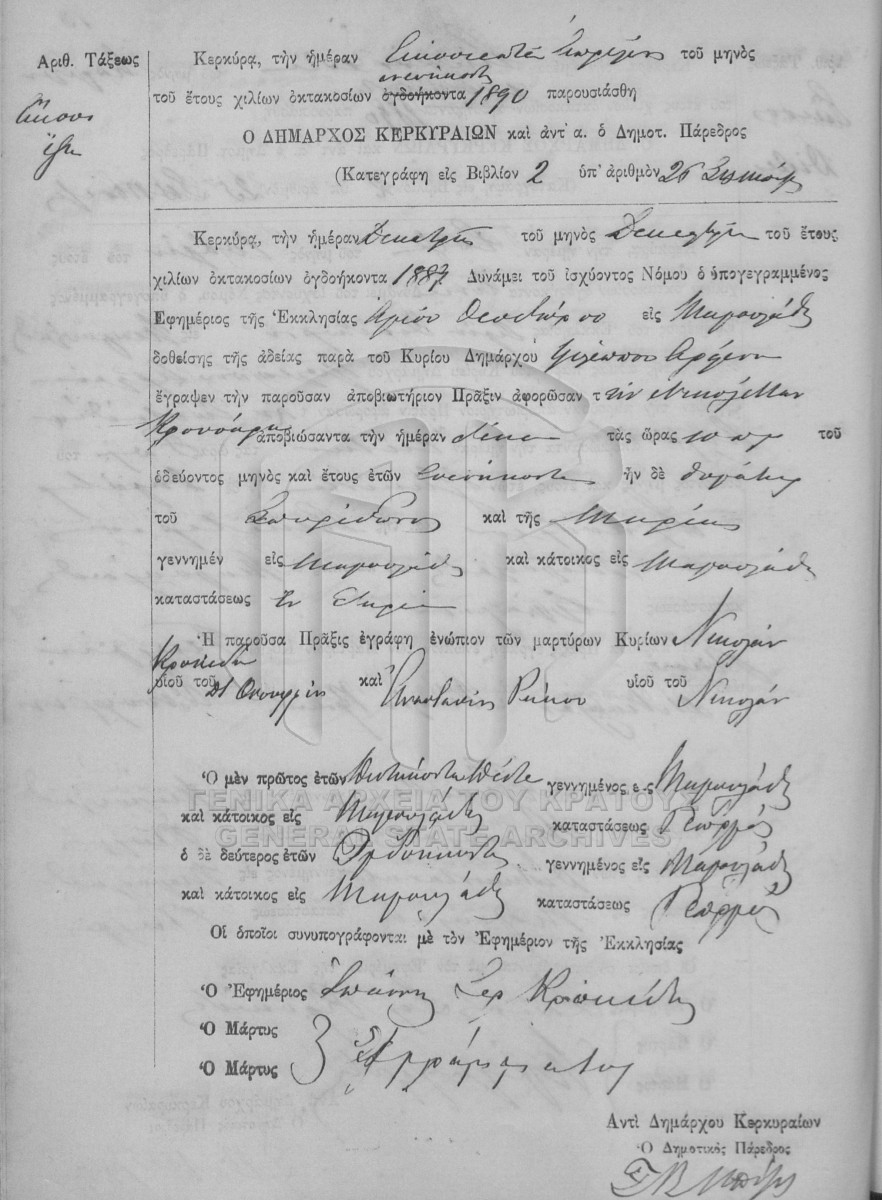 Αριθ. Τάξεως
Εἴκοσι
ἕξη
Κερκύρᾳ, τὴν ἡμέραν Εἰκοστὴν Ἀπριλίου τοῦ μηνὸς
ἐνενήκοντα
τοῦ ἔτους χιλίων ὀκτακοσίων ὀγδοήκοντα 1890 παρουσιάσθη
Ο ΔΗΜΑΡΧΟΣ ΚΕΡΚΥΡΑΙΩΝ καὶ ἀντ' α. ὁ Δημοτ. Πάρεδρος
(Κατεγράφη εἰς Βιβλίον 2 ὑπ' ἀριθμὸν 26
Κερκύρᾳ, τὴν ἡμέραν Δεκατρεῖς τοῦ μηνὸς Δεκεμβρίου τοῦ ἔτους
χιλίων ὀκτακοσίων ὀγδοήκοντα 1887 Δυνάμει τοῦ ἰσχύοντος Νόμου ὁ ὑπογεγραμμένος
Ἐφημέριος τῆς Ἐκκλησίας Ἁγίου Θεοδώρου εἰς Μαγουλάδες
δοθείσης τῆς ἀδείας παρὰ τοῦ Κυρίου Δημάρχου
ἔγραψεν τὴν παροῦσαν ἀποβιωτήριον Πρᾶξιν ἀφορῶσαν τ την Νικολέτταν
ἀποβιώσαντα τὴν ἡμέραν δέκα τὰς ὥρας 10 πμ τοῦ
ὁδεύοντος μηνὸς καὶ ἔτους ἐτῶν ἐνενήκοντα ἦν δὲ θυγάτηρ
τοῦ Σπυρίδωνος καὶ τῆς Μαρίας
γεννημέν εἰς Μαγουλάδες καὶ κάτοικος εἰς Μαγουλάδες
καταστάσεως ἐν χηρίᾳ
Ἡ παροῦσα Πρᾶξις ἐγράφη ἐνώπιον τῶν μαρτύρων Κυρίων Νικολάου
υἱοῦ τοῦ καὶ Ἀναστασίου υἱοῦ τοῦ Νικολάου
Ὁ μὲν πρῶτος ἐτῶν πεντήκοντα πέντε γεννημένος εἰς Μαγουλάδες
καὶ κάτοικος εἰς Μαγουλάδες καταστάσεως Γεωργός
ὁ δὲ δεύτερος ἐτῶν Ὀγδοήκοντα γεννημένος εἰς Μαγουλάδες
καὶ κάτοικος εἰς Μαγουλάδες καταστάσεως Γεωργός
Οἱ ὁποῖοι συνυπογράφονται μὲ τὸν Ἐφημέριον τῆς Ἐκκλησίας
Ὁ Ἐφημέριος Ἰωάννης
Ὁ Μάρτυς
Ὁ Μάρτυς Ἀγράμματοι
Ἀντὶ Δημάρχου Κερκυραίων
Ὁ Δημοτικὸς Πάρεδρος
ΓΕΝΙΚΑ ΑΡΧΕΙΑ ΤΟΥ ΚΡΑΤΟΥΣ
GENERAL STATE ARCHIVES